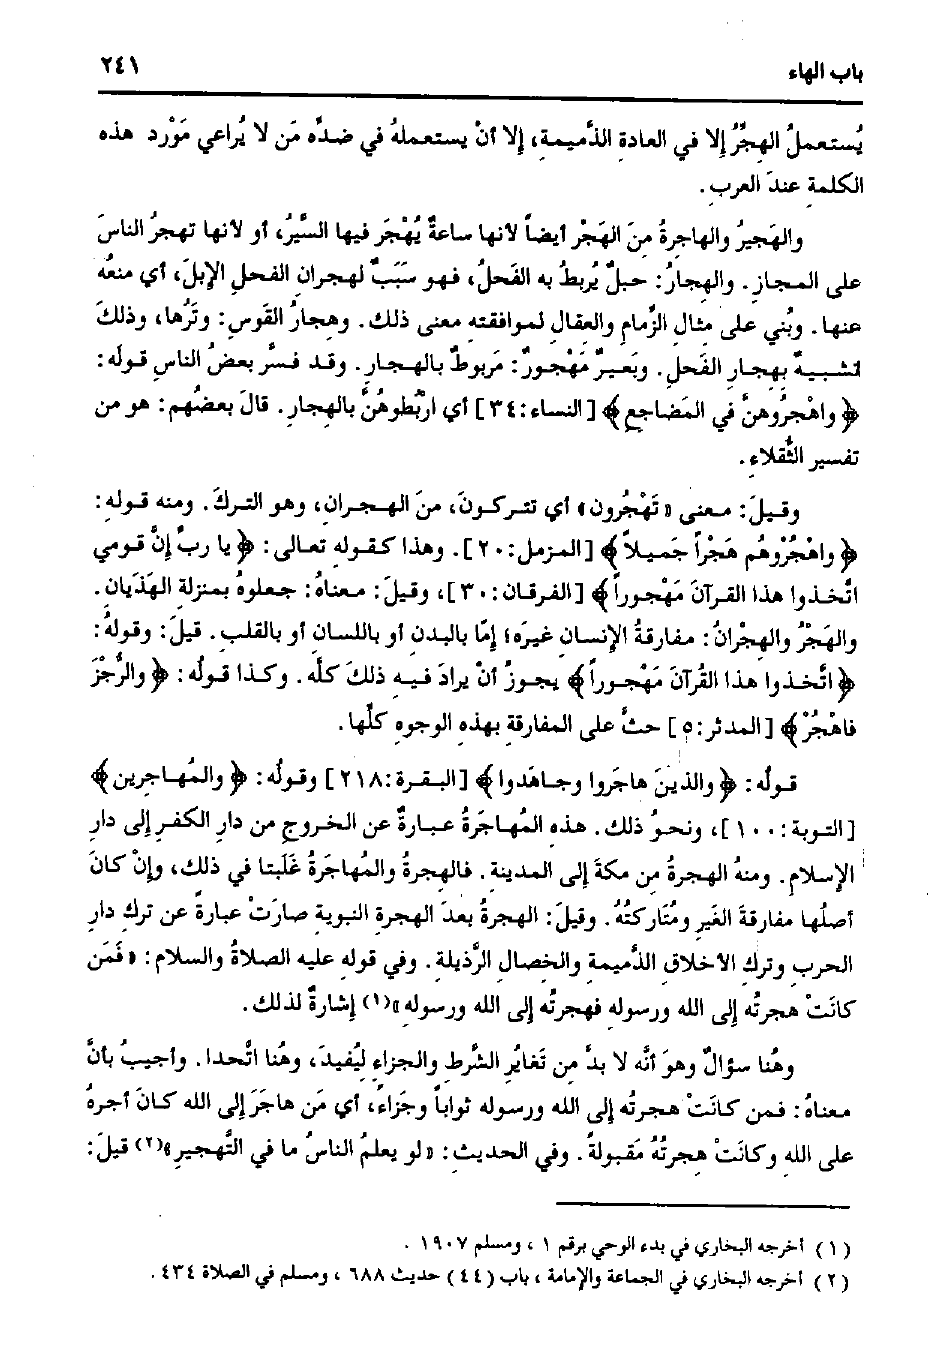 باب الهاء ٢٤١
يُستعملُ الهِجِّيرُ إلا في العادةِ الذَّميمة، إلا أنْ يستعملهُ في ضدِّه مَن لا يُراعي مَوْرد هذه
الكلمة عندَ العربِ.
والهَجيرُ والهاجرةُ منَ الهَجْر أيضاً لأنها ساعةٌ يُهْجَر فيها السَّيرُ، أو لأنها تهجرُ الناسَ
على المجازِ. والهِجارُ: حبلٌ يُربطُ به الفَحلُ، فهو سَبَبٌ لهجران الفحلِ الإبلَ، أي منعُه
عنها. وبُني على مثالِ الزِّمام والعقال لموافقته معنى ذلك. وهجارُ القَوسِ: وتَرُها، وذلكَ
تشبيهٌ بهجارِ الفَحلِ. وبَعيرٌ مَهْجورٌ: مَربوطٌ بالهجارِ. وقد فسَّر بعضُ الناسِ قولَه:
﴿واهْجُروهنَّ في المَضاجع﴾ [النساء: ٣٤] أي اربُطوهُنَّ بالهجارِ. قالَ بعضُهم: هو من
تفسيرِ الثُّقلاءِ.
وقيلَ: معنى «تَهْجُرون» أي تتركونَ، منَ الهجرانِ، وهو التركَ. ومنه قولهِ:
﴿واهْجُرْوهُم هَجْراً جَميلاً﴾ [المزمل: ٢٠]. وهذا كقوله تعالى: ﴿يا ربِّ إنَّ قومي
اتَّخذوا هذا القرآنَ مَهْجوراً﴾ [الفرقان: ٣٠]، وقيلَ: معناهُ: جعلوهُ بمنزلة الهَذَيانِ.
والهَجْرُ والهِجْرانُ: مفارقةُ الإنسانِ غيرَه؛ إمّا بالبدن أو باللسان أو بالقلبِ. قيلَ: وقولهُ:
﴿اتَّخذوا هذا القُرآنَ مَهْجوراً﴾ يجوزُ أنْ يرادَ فيه ذلكَ كلَّه. وكذا قولُه: ﴿والرُّجْزَ
فاهْجُرْ﴾ [المدثر: ٥] حثٌّ على المفارقة بهذهِ الوجوهِ كلِّها.
قولُه: ﴿والذينَ هاجَروا وجاهَدوا﴾ [البقرة: ٢١٨] وقولُه: ﴿والمُهاجِرين﴾
[التوبة: ١٠٠]، ونحوُ ذلك. هذه المُهاجَرةُ عبارةٌ عن الخروجِ من دارِ الكفرِ إلى دارِ
الإسلامِ. ومنهُ الهجرةُ من مكةَ إلى المدينةِ. فالهجرةُ والمُهاجَرةُ غَلَبتا في ذلك، وإنْ كانَ
أصلُها مفارقةَ الغَيرِ ومُتاركتُهُ. وقيلَ: الهجرةُ بعدَ الهجرةِ النبوية صارَتْ عبارةً عن تركِ دارِ
الحربِ وتركِ الأخلاقِ الذَّميمة والخصالِ الرَّذيلة. وفي قوله عليه الصلاةُ والسلام: «فَمَن
كانَتْ هجرتُه إلى الله ورسوله فهجرتُه إلى الله ورسوله»(١) إشارةٌ لذلك.
وهُنا سؤالٌ وهوَ أنَّه لا بدَّ من تَغايُرِ الشَّرط والجزاءِ ليُفيدَ، وهُنا اتَّحدا. وأجيبُ بأنَّ
معناهُ: فمن كانَتْ هجرتُه إلى الله ورسوله ثواباً وجَزاءً، أي مَن هاجَرَ إلى الله كانَ أجرهُ
على اللهِ وكانَتْ هجرتُهُ مَقبولةً. وفي الحديثِ: «لو يعلمُ الناسُ ما في التَّهجيرِ»(٢) قيلَ:
(١) أخرجه البخاري في بدء الوحي برقم ١، ومسلم ١٩٠٧.
(٢) أخرجه البخاري في الجماعة والإمامة، باب (٤٤) حديث ٦٨٨، ومسلم في الصلاة ٤٣٤.